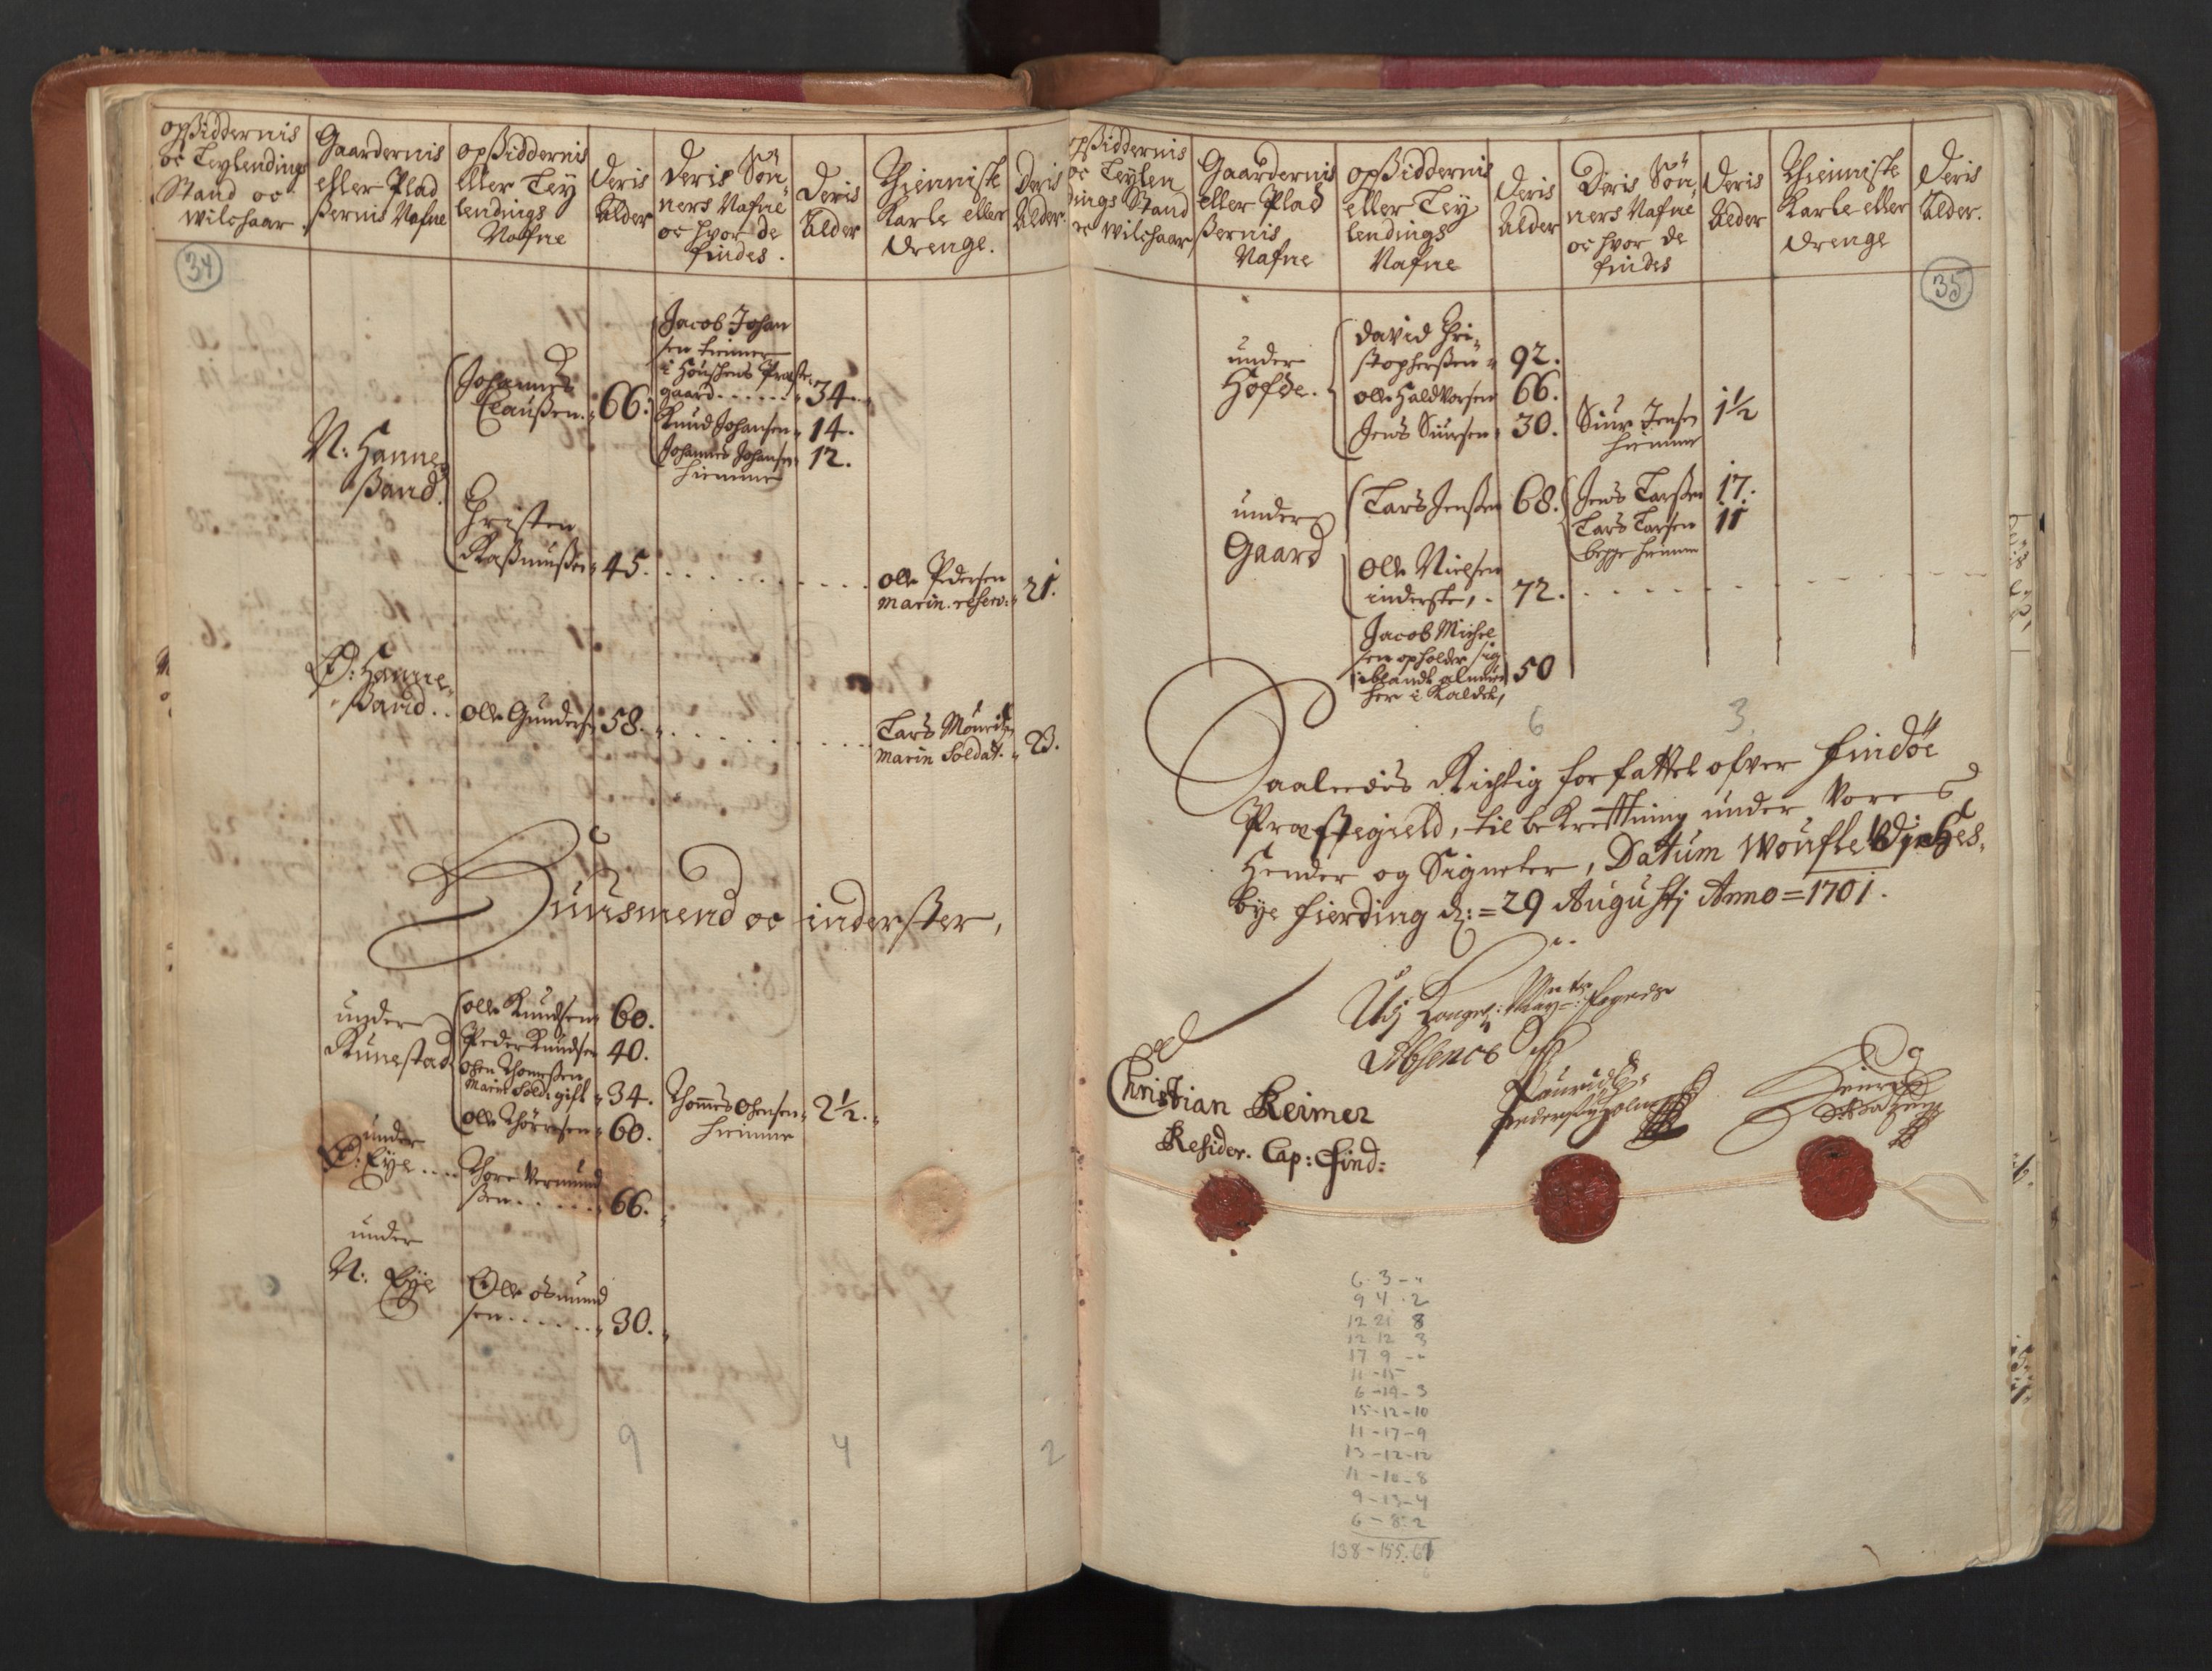 opßiddernis
oc Leylendings
Stand oc
wilchaar
Gaardernis
eller Plad
ßernis Nafne
opßiddernis
eller Ley
lendings
Nafne
Deris
Alder
Deris Søn
ners Nafne
oc hvor de
findes.
Deris
Alder
Thienniste
Karle eller
Drenge.
Deris
Alder.
34
N: Hanne
ßand.
Johannes
Claußen. 66.
Jacob Johan
sen tienner
gaard...... 34
Knud Johansen 14.
Johannes Johansen 12.
hiemme
Christen
Raßmußen 45.
Olle Pedersen
marin. reserv: 21.
Ø: Hanne
ßand..
Olle Gunders 58.
Lars Mouritz
Marin Soldat. 23.
Huusmend oc inderster,
under
Runestad
Olle Knudsen 60.
Peder Knudsen 40.
Ohen Thomeßen
Marin Sold: gift 34.
Thomes Ohensen 2½.
hiemme
Olle Thorresen 60.
under
Ø: Eye....
Thore Vermund
sen...... 66.
under
N: Eye
Olle Osmund
sen...... 30.
9 4 2
opßiddernis
oc Leylen
dings Stand
oc wilchaar
Gaardernis
eller Plad
ßernis
Nafne
opßiddernis
eller Ley
lendings
Nafne
Deris
Alder
Deris Søn
ners Nafne
oc hvor de
findes
Deris
Alder
Thienniste
Karle eller
Drenge
Deris
Alder.
35
under
Hofde.
David Chri
stophersen 92.
Olle Haldvorsen 66.
Jens Siursen 30.
Siur Jensen 1½
hiemme
under
Gaard
Lars Jenßen 68.
Jens Larßen 17.
Lars Larsen 11
begge hiemme
Olle Nielsen
inderste, 72.
Jacob Michel
sen opholder sig
iblandt almuen 50
her i Kaldet,
6 3
Saaledis Richtig forfattet ofver Findöe
Præstegield, til bekrefftning under Vores
Hender og Signeter, Datum
bye fierding d: = 29 Augusti Anno = 1701.
Udj Kongl: May:ts fogeds
Absence
Christian Reimer
Resider. Cap: Find:
6 3 - "
9 4 . 2
12 21 8
12 12 3
17 9 - -
11 - 15
6 - 19 - 3
15 - 12 - 10
11 - 17 - 9
13 - 12 - 12
11 - 10 - 8
9 - 13 - 4
6 - 8. 2
138 - 155. 61